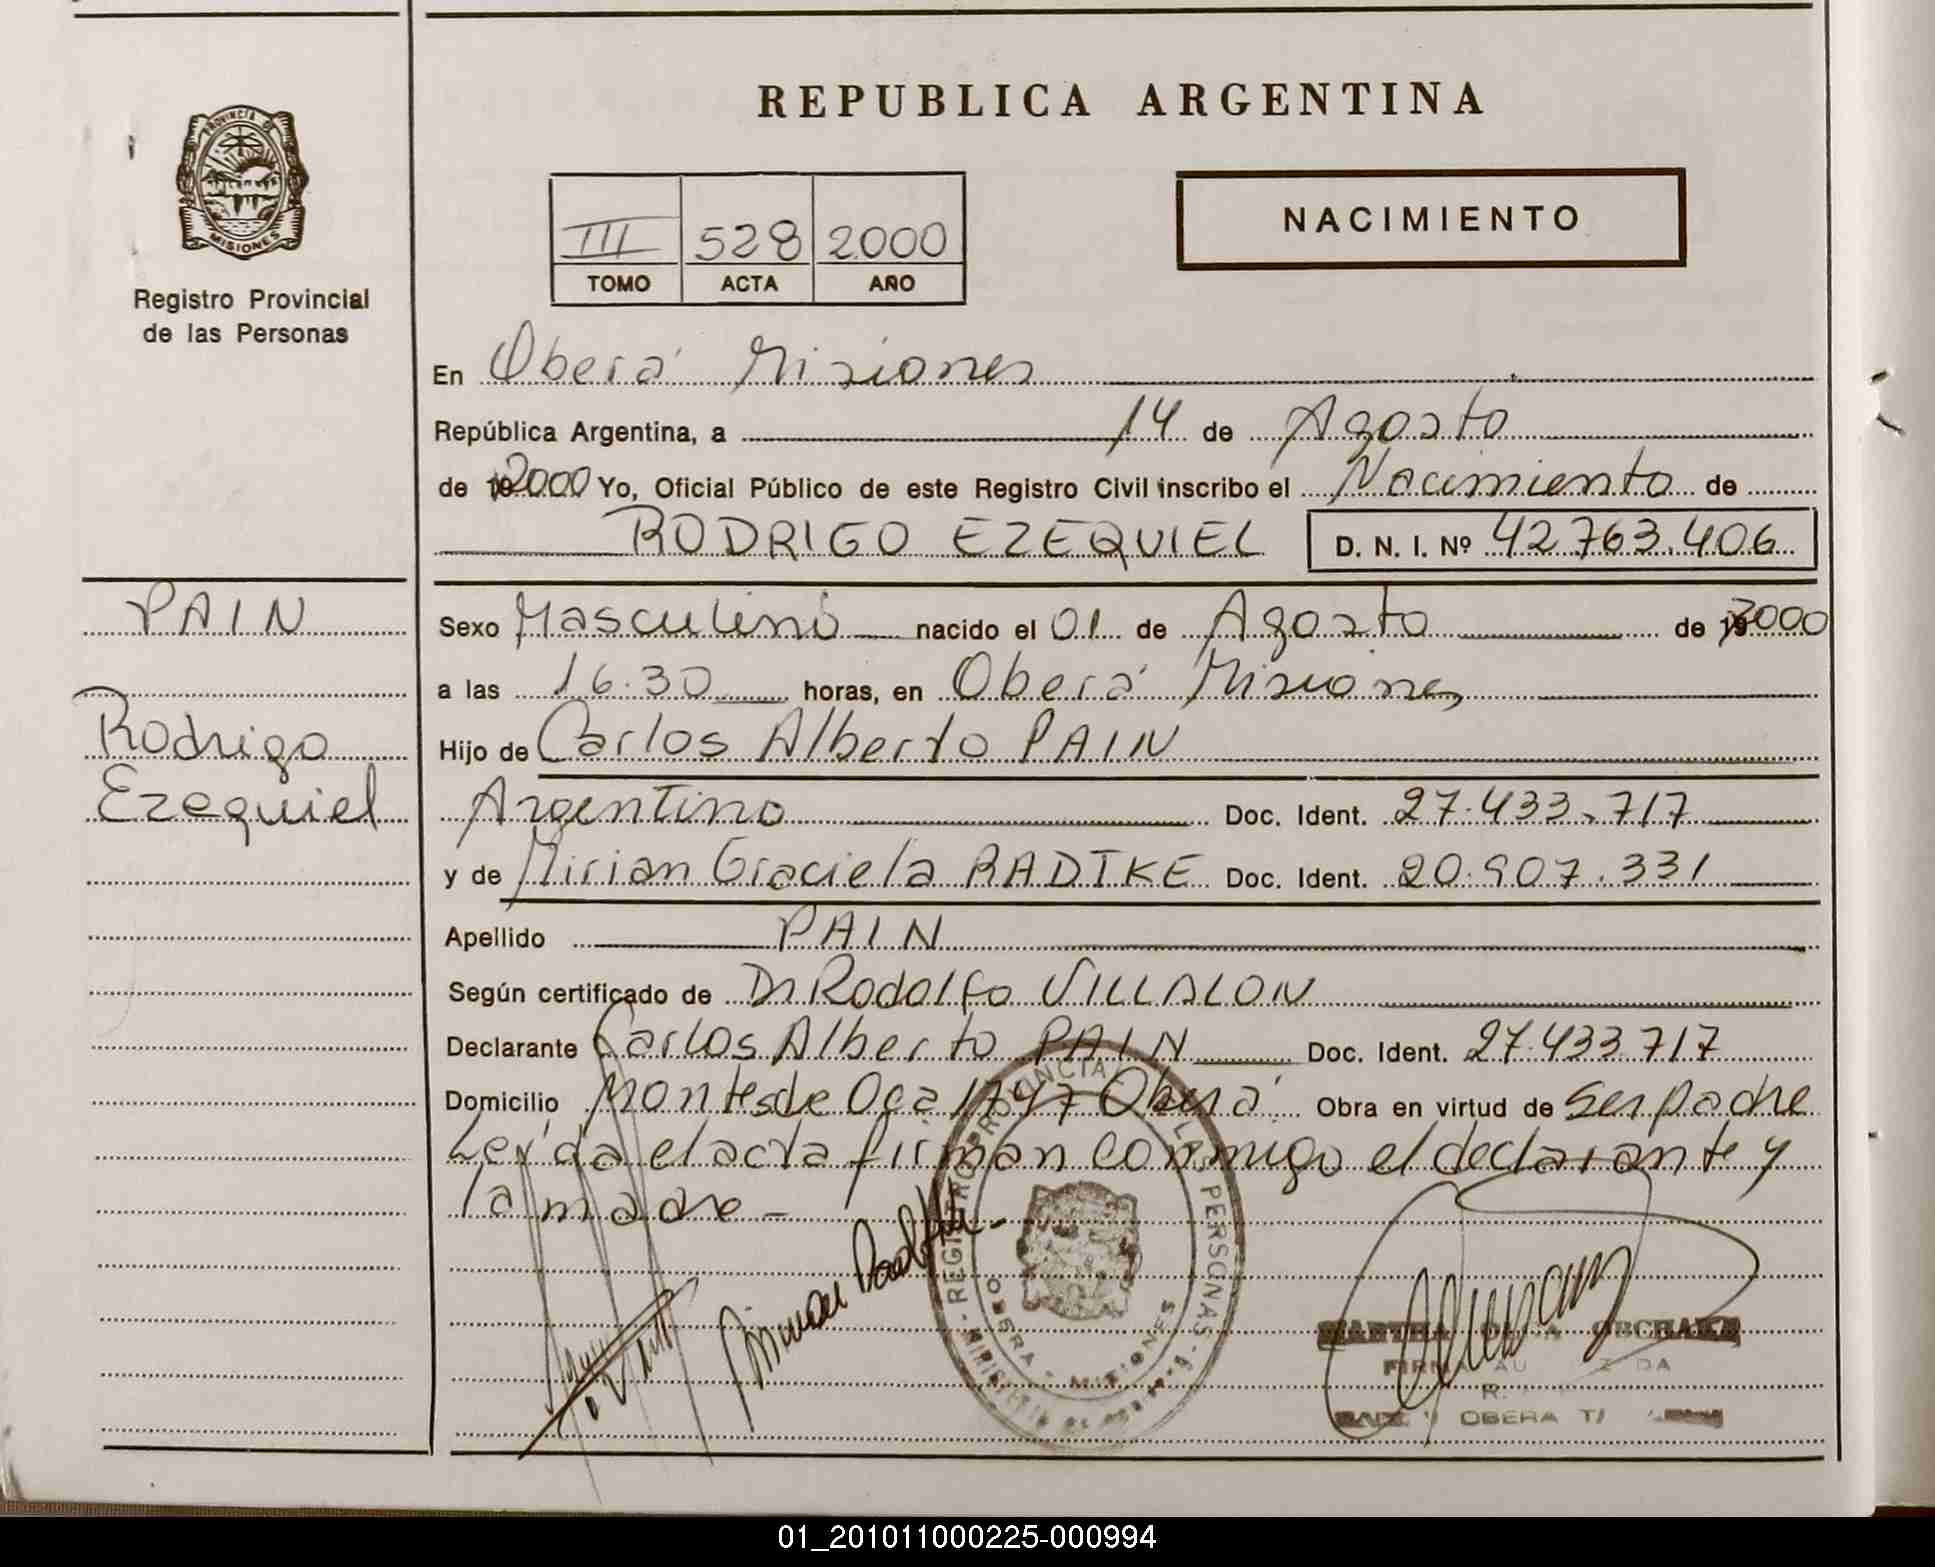 REPUBLICA ARGENTINA
PROVINCIA DE
MISIONES
Registro Provincial
de las Personas
III 528 2000
TOMO ACTA AÑO
NACIMIENTO
En Oberá Misiones
República Argentina, a 14 de Agosto
de 2000 Yo, Oficial Público de este Registro Civil inscribo el Nacimiento de
RODRIGO EZEQUIEL D. N. I. Nº 42.763.406
PAIN
Rodrigo
Ezequiel
Sexo Masculino nacido el 01 de Agosto de 2000
a las 16.30 horas, en Oberá Misiones
Hijo de Carlos Alberto PAIN
Argentino Doc. Ident. 27.433.717
y de Mirian Graciela RADTKE Doc. Ident. 20.907.331
Apellido PAIN
Según certificado de Dr Rodolfo VILLALON
Declarante Carlos Alberto PAIN Doc. Ident. 27.433.717
Domicilio Montes de Oca 1747 Oberá Obra en virtud de ser padre
Leída el acta firman conmigo el declarante y
la madre -
REGISTRO PROVINCIAL LAS PERSONAS
OBERA - MISIONES
MARTHA
OBERA
01_201011000225-000994